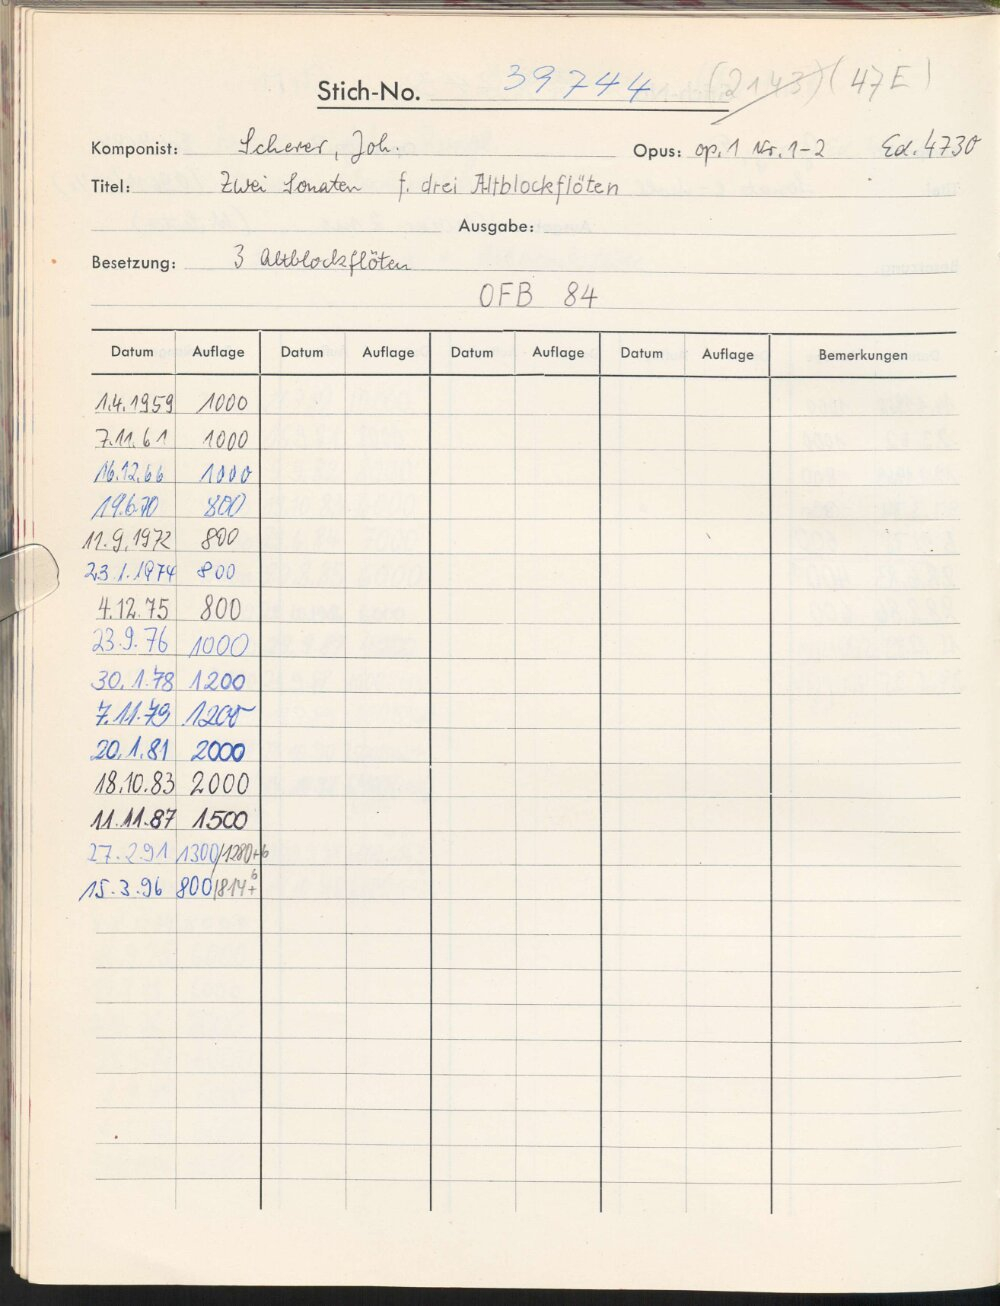 Stich-No. 39744 (2143) (47E)
Komponist: Scherer, Joh. Opus: op. 1 Nr. 1-2 Ed. 4730
Titel: Zwei Sonaten f. drei Altblockflöten
Ausgabe:
Besetzung: 3 Altblockflöten
OFB 84
Datum Auflage Datum Auflage Datum Auflage Datum Auflage Bemerkungen
1.4.1959 1000
7.11.61 1000
16.12.66 1000
19.6.70 800
11.9.1972 800
23.1.1974 800
4.12.75 800
23.9.76 1000
30.1.78 1200
7.11.79 1200
20.1.81 2000
18.10.83 2000
11.11.87 1500
27.2.91 1300/1280+6
15.3.96 800/814+6